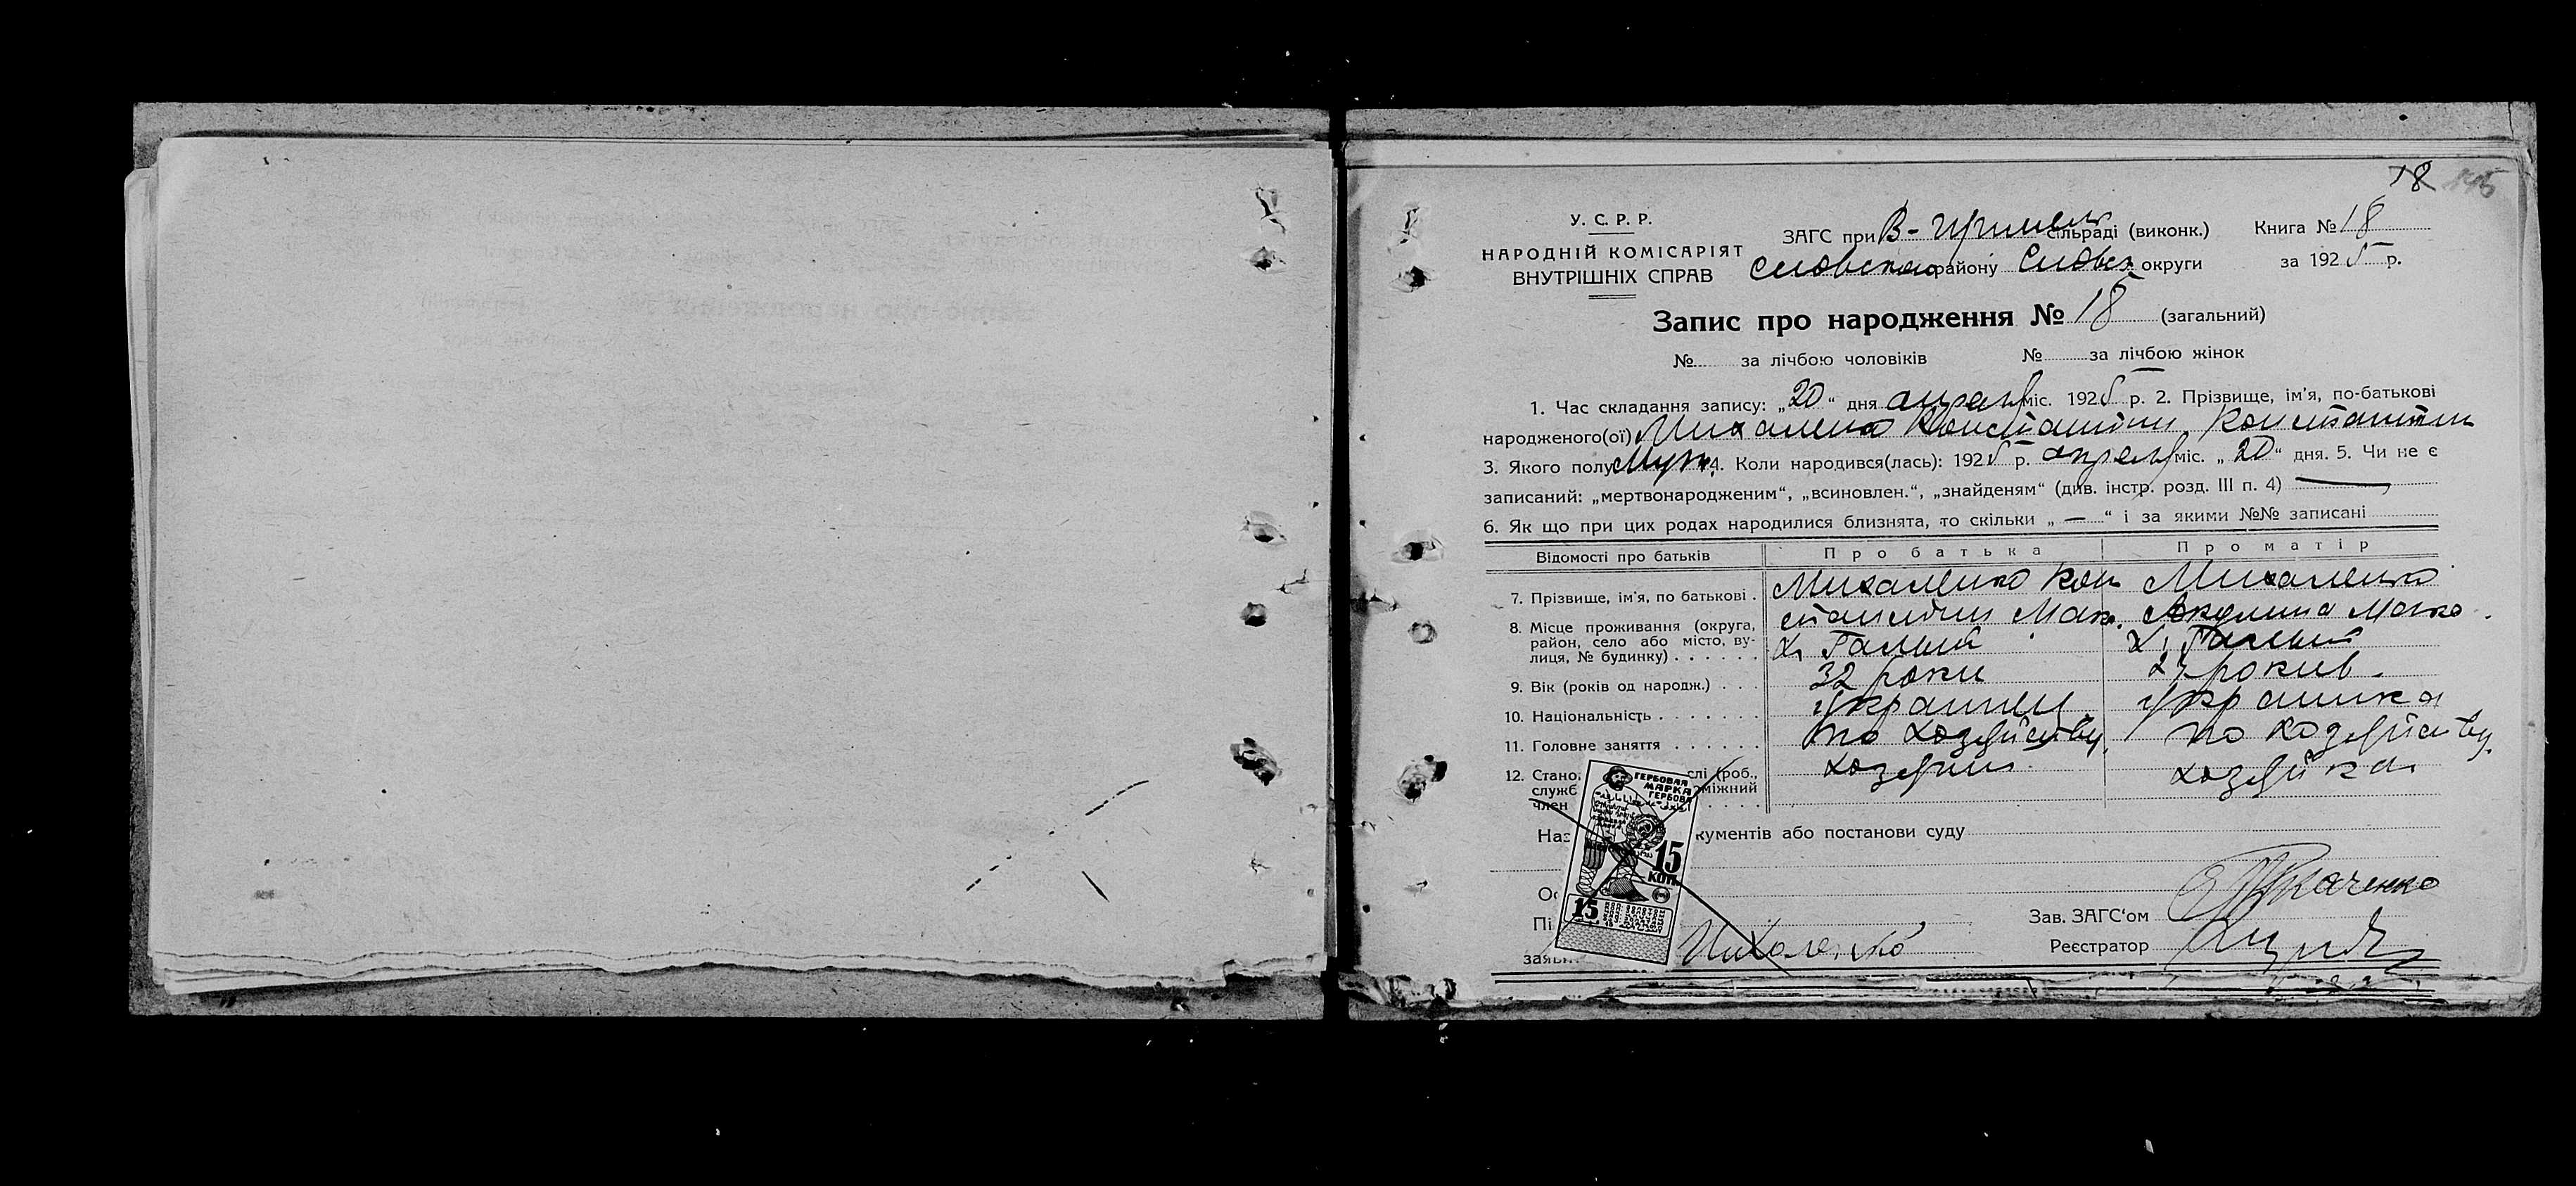 18 145
У. С. Р. Р.
НАРОДНІЙ КОМІСАРІЯТ
ВНУТРІШНІХ СПРАВ
ЗАГС при В- сільраді (виконк.) Книга № 18
району округи за 1925 р.
Запис про народження № 18 (загальний)
№ за лічбою чоловіків № за лічбою жінок
1. Час складання запису: „20“ дня апреля міс. 1925 р. 2. Прізвище, ім'я, по-батькові
народженого(ої) Михаленко Константин Константин
3. Якого полу Муж. 4. Коли народився(лась): 1925 р. апреля міс. „20“ дня. 5. Чи не є
записаний: „мертвонародженим“, „всиновлен.“, „знайденям“ (див. інстр. розд. III п. 4) —
6. Як що при цих родах народилися близнята, то скільки „—“ і за якими №№ записані
Відомості про батьків Про батька Про матір
7. Прізвище, ім'я, по батькові . Михаленко Кон Михаленко
стантин Мак. Акулина Марко
8. Місце проживання (округа,
район, село або місто, ву-
лиця, № будинку) . . . . . . х. Галый х. Галый
9. Вік (років од народж.) . . . 32 роки 27 рокив.
10. Національність . . . . . . . украинец украинка
11. Головне заняття . . . . . . по хозяйству. по хозяйству.
12. Стано слі (роб., хозяин хозяйка
служб міжний
член
Наз кументів або постанови суду
ГЕРБОВАЯ
МАРКА
ГЕРБОВА
15
КОП.
15
Ос
Пі
заяв Михаленко
Зав. ЗАГС‘ом Ткаченко
Реєстратор